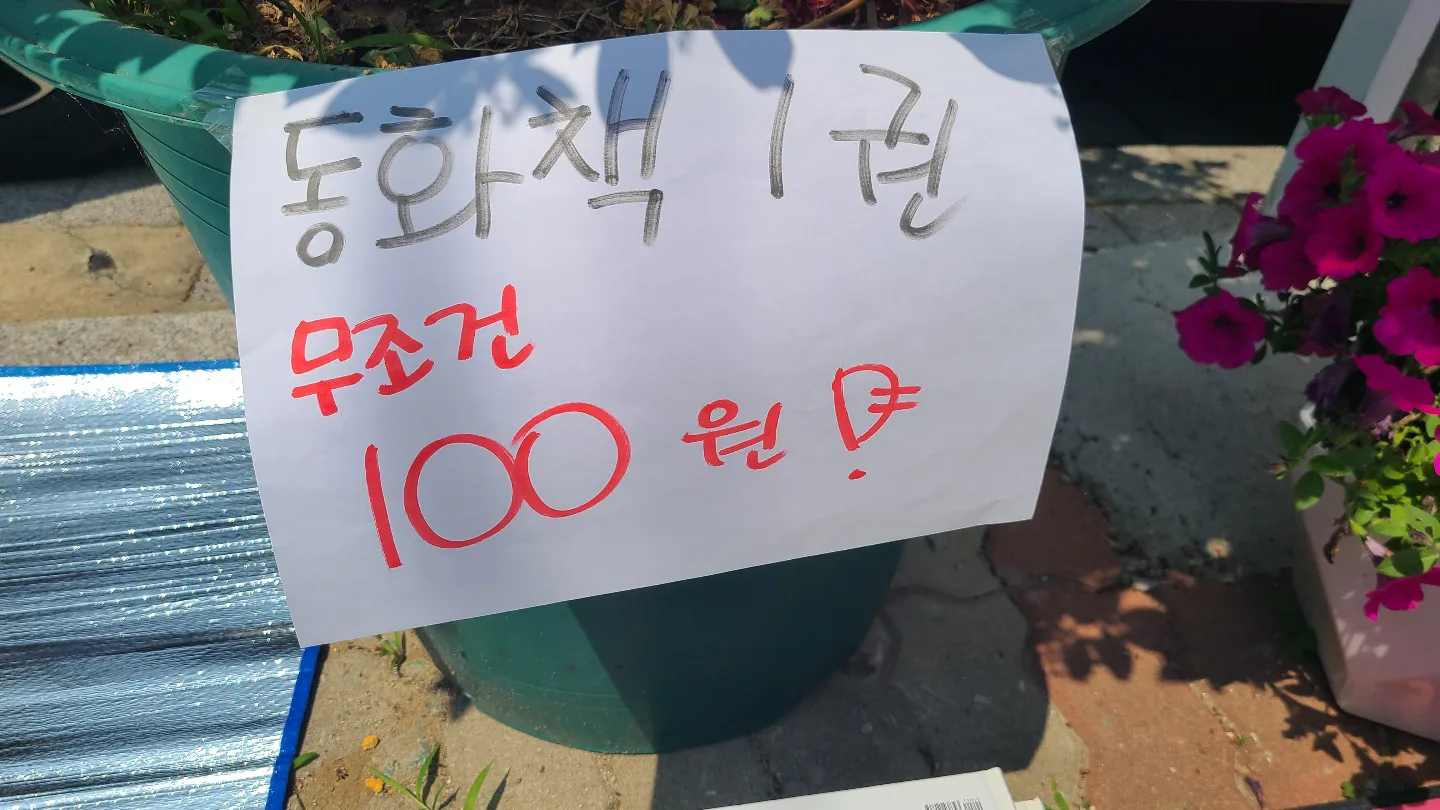 동화책 1권
무조건
100원!